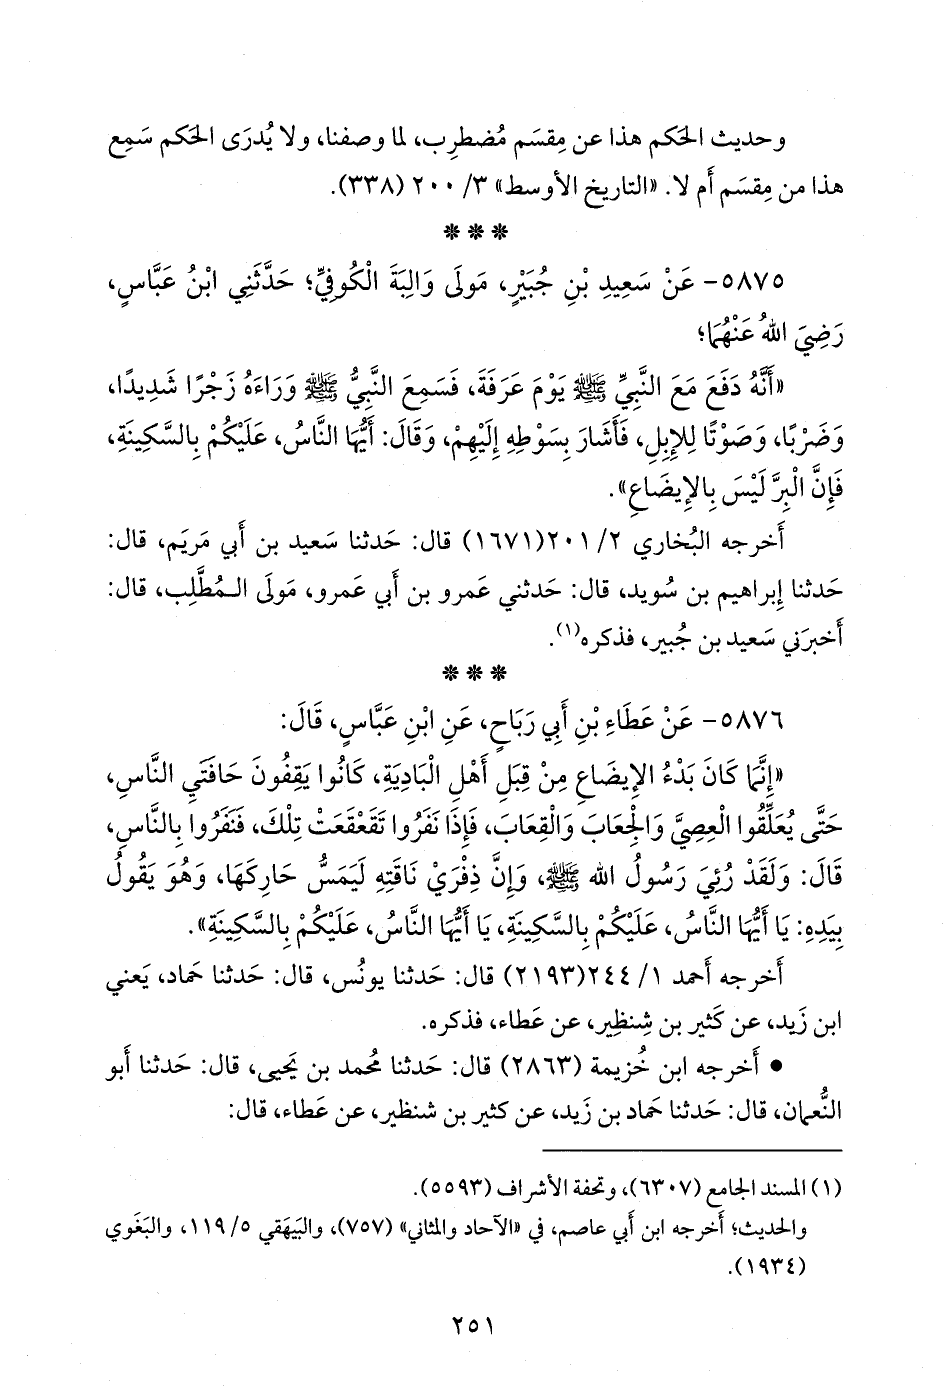 وحديث الحَكم هذا عن مِقسَم مُضطرِب، لما وصفنا، ولا يُدرَى الحَكم سَمِع
هذا من مِقسَم أَم لا. «التاريخ الأوسط» ٣/ ٢٠٠ (٣٣٨).
* * *
٥٨٧٥- عَنْ سَعِيدِ بْنِ جُبَيْرٍ، مَولَى وَالِبَةَ الْكُوفِيِّ؛ حَدَّثَنِي ابْنُ عَبَّاسٍ،
رَضِيَ اللهُ عَنْهُمَا؛
«أَنَّهُ دَفَعَ مَعَ النَّبِيِّ ﷺ يَوْمَ عَرَفَةَ، فَسَمِعَ النَّبِيُّ ﷺ وَرَاءَهُ زَجْرًا شَدِيدًا،
وَضَرْبًا، وَصَوْتًا لِلإِبِلِ، فَأَشَارَ بِسَوْطِهِ إِلَيْهِمْ، وَقَالَ: أَيُّهَا النَّاسُ، عَلَيْكُمْ بِالسَّكِينَةِ،
فَإِنَّ الْبِرَّ لَيْسَ بِالإِيضَاعِ».
أَخرجه البُخاري ٢/ ٢٠١(١٦٧١) قال: حَدثنا سَعيد بن أَبي مَريَم، قال:
حَدثنا إِبراهيم بن سُويد، قال: حَدثني عَمرو بن أَبي عَمرو، مَولَى المُطَّلِب، قال:
أَخبرَني سَعيد بن جُبير، فذكره(١).
* * *
٥٨٧٦- عَنْ عَطَاءِ بْنِ أَبِي رَبَاحٍ، عَنِ ابْنِ عَبَّاسٍ، قَالَ:
«إِنَّمَا كَانَ بَدْءُ الإِيضَاعِ مِنْ قِبَلِ أَهْلِ الْبَادِيَةِ، كَانُوا يَقِفُونَ حَافَتَيِ النَّاسِ،
حَتَّى يُعَلِّقُوا الْعِصِيَّ وَالْجِعَابَ وَالْقِعَابَ، فَإِذَا نَفَرُوا تَقَعْقَعَتْ تِلْكَ، فَنَفَرُوا بِالنَّاسِ،
قَالَ: وَلَقَدْ رُئِيَ رَسُولُ اللهِ ﷺ، وَإِنَّ ذِفْرَيْ نَاقَتِهِ لَيَمَسُّ حَارِكَهَا، وَهُوَ يَقُولُ
بِيَدِهِ: يَا أَيُّهَا النَّاسُ، عَلَيْكُمْ بِالسَّكِينَةِ، يَا أَيُّهَا النَّاسُ، عَلَيْكُمْ بِالسَّكِينَةِ».
أَخرجه أَحمد ١/ ٢٤٤(٢١٩٣) قال: حَدثنا يونُس، قال: حَدثنا حَماد، يَعني
ابن زَيد، عن كَثير بن شِنظِير، عن عَطاء، فذكره.
• أَخرجه ابن خُزيمة (٢٨٦٣) قال: حَدثنا مُحمد بن يَحيى، قال: حَدثنا أَبو
النُّعمان، قال: حَدثنا حَماد بن زَيد، عن كثير بن شنظير، عن عَطاء، قال:
(١) المسند الجامع (٦٣٠٧)، وتحفة الأشراف (٥٥٩٣).
والحديث؛ أَخرجه ابن أبي عاصم، في «الآحاد والمثاني» (٧٥٧)، والبَيهَقي ٥/ ١١٩، والبَغَوي
(١٩٣٤).
٢٥١